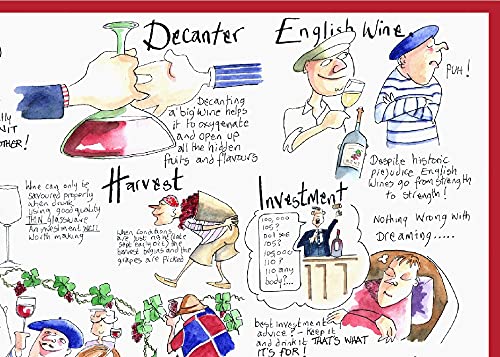 Decanter
Decanting
a 'big' wine helps
it to oxygenate
and open up
all the hidden
fruits and flavours
English Wine.
PUH!
Despite historic
prejudice English
Wines go from strength
to strength!
Wine can only be
savoured properly
when drunk
using good quality
THIN glassware
An investment WELL
worth making
Harvest
When conditions
are just right (late
harvest begins and the
grapes are picked
Investment
100,000
105?
105?
105?
110?
110 any
body?...
Nothing Wrong with
Dreaming.....
Best Investment
advice? - Keep it
and drink it THAT'S WHAT
IT'S FOR!